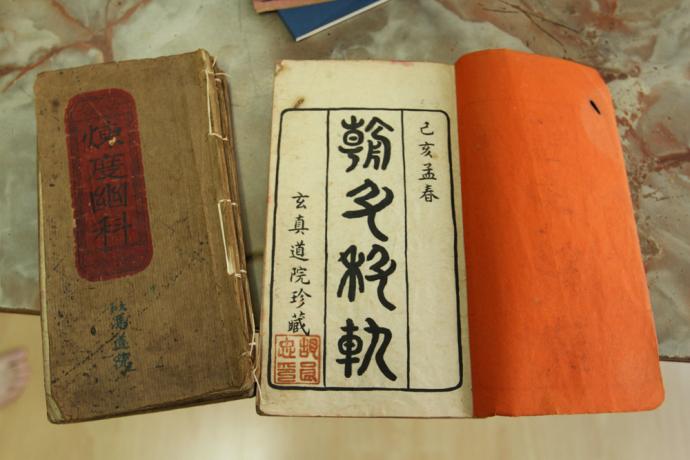 煉度幽科
己亥孟春
翰文移軌
玄真道院珍藏